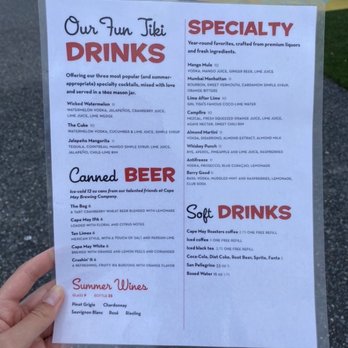 Our Fun Tiki
DRINKS
Offering our three most popular (and summer-
appropriate) specialty cocktails, mixed with love
and served in a 16oz mason jar.
Wicked Watermelon 11
WATERMELON VODKA, JALAPEÑOS, CRANBERRY JUICE,
LIME JUICE, LIME WEDGE
The Cake 10
WATERMELON VODKA, CUCUMBER & LIME JUICE, SIMPLE SYRUP
Jalapeño Mangorita 11
TEQUILA, COINTREAU, MANGO SIMPLE SYRUP, LIME JUICE,
JALAPEÑO, CHILE-LIME RIM
Canned BEER
Ice-cold 12 oz cans from our talented friends at Cape
May Brewing Company.
The Bog 6
A TART, CRANBERRY WHEAT BEER BLENDED WITH LEMONADE
Cape May IPA 6
LOADED WITH FLORAL AND CITRUS NOTES
Tan Limes 6
MEXICAN-STYLE, WITH A TOUCH OF SALT AND PASSION LIME
Cape May White 6
BREWED WITH ORANGE AND LEMON PEELS AND CORIANDER
Crushin' It 6
A REFRESHING, FRUITY IPA BURSTING WITH ORANGE FLAVOR
Summer Wines
GLASS 9 BOTTLE 32
Pinot Grigio Chardonnay
Sauvignon Blanc Rosé Riesling
SPECIALTY
Year-round favorites, crafted from premium liquors
and fresh ingredients.
Mango Mule 10
VODKA, MANGO JUICE, GINGER BEER, LIME JUICE
Mumbai Manhattan 11
BOURBON, SWEET VERMOUTH, CARDAMOM SIMPLE SYRUP,
ORANGE BITTERS
Lime After Lime 10
GIN, TIKA'S MANGO COCO-LIME WATER
Campfire 11
MEZCAL, FRESH SQUEEZED ORANGE JUICE, LIME JUICE,
AGAVE NECTAR, SWEET CHILI RIM
Almond Martini 11
VODKA, DISARONNO, ALMOND EXTRACT, ALMOND MILK
Whiskey Punch 11
RYE, APEROL, PINEAPPLE AND LIME JUICE, RASPBERRIES
Antifreeze 11
VODKA, PROSECCO, BLUE CURAÇAO, LEMONADE
Berry Good 11
BASIL VODKA, MUDDLED MINT AND RASPBERRIES, LEMONADE,
CLUB SODA
Soft DRINKS
Cape May Roasters coffee 3 (1 FREE REFILL)
Iced coffee 4 (ONE FREE REFILL)
Iced black tea 3 (1 FREE REFILL)
Coca-Cola, Diet Coke, Root Beer, Sprite, Fanta 3
San Pellegrino
Boxed Water